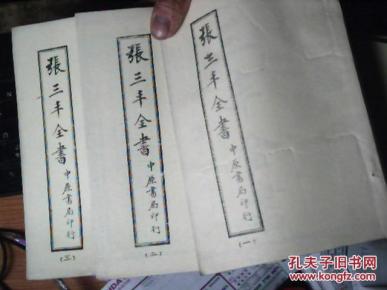 張三丰全書
中原書局印行
（三）
張三丰全書
中原書局印行
（二）
張三丰全書
中原書局印行
（一）
孔夫子旧书网